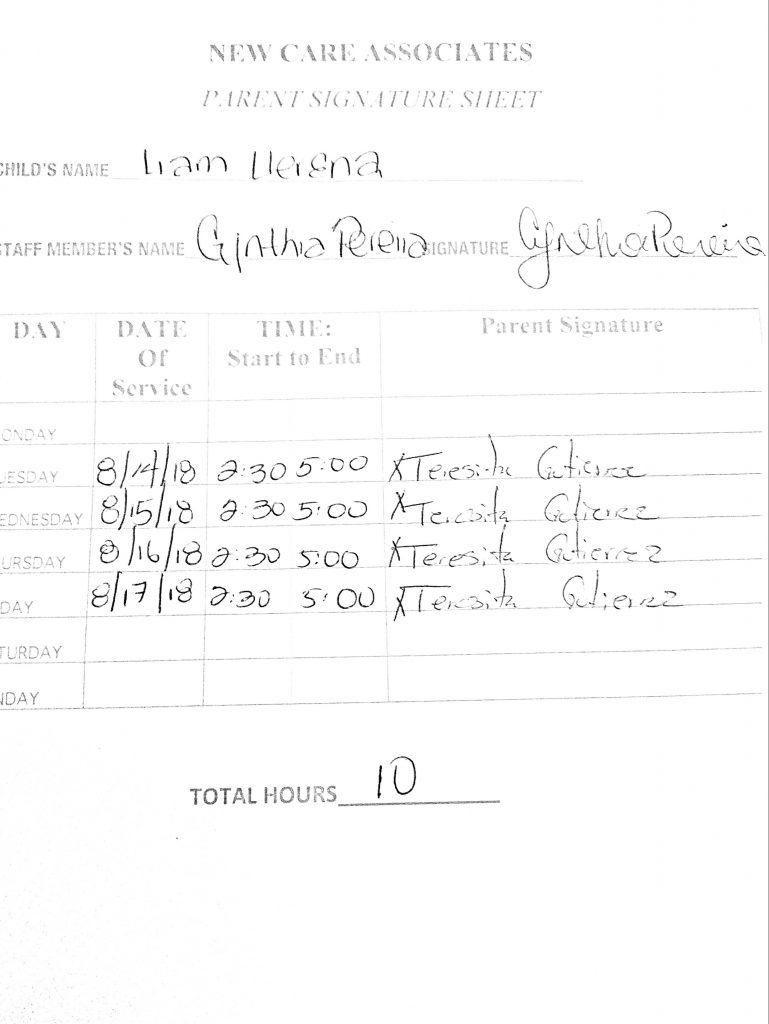 NEW CARE ASSOCIATES
PARENT SIGNATURE SHEET
CHILD'S NAME Liam
STAFF MEMBER'S NAME Cynthia Pereira SIGNATURE Cynthia Pereira
DAY DATE Of Service TIME: Start to End Parent Signature
ONDAY
UESDAY 8/14/18 2:30 5:00 X Teresita Gutierrez
EDNESDAY 8/15/18 2:30 5:00 X Teresita Gutierrez
URSDAY 8/16/18 2:30 5:00 X Teresita Gutierrez
DAY 8/17/18 2:30 5:00 X Teresita Gutierrez
TURDAY
NDAY
TOTAL HOURS 10